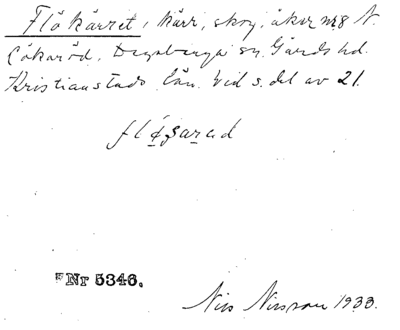 Flökärret, kärr, skog, åker nr 8 N.
Cökaröd, Degeberga sn, Gärds hd.
Kristianstads län. Vid s. del av 21.
Nr 5346.
Nils Nilsson 1933.